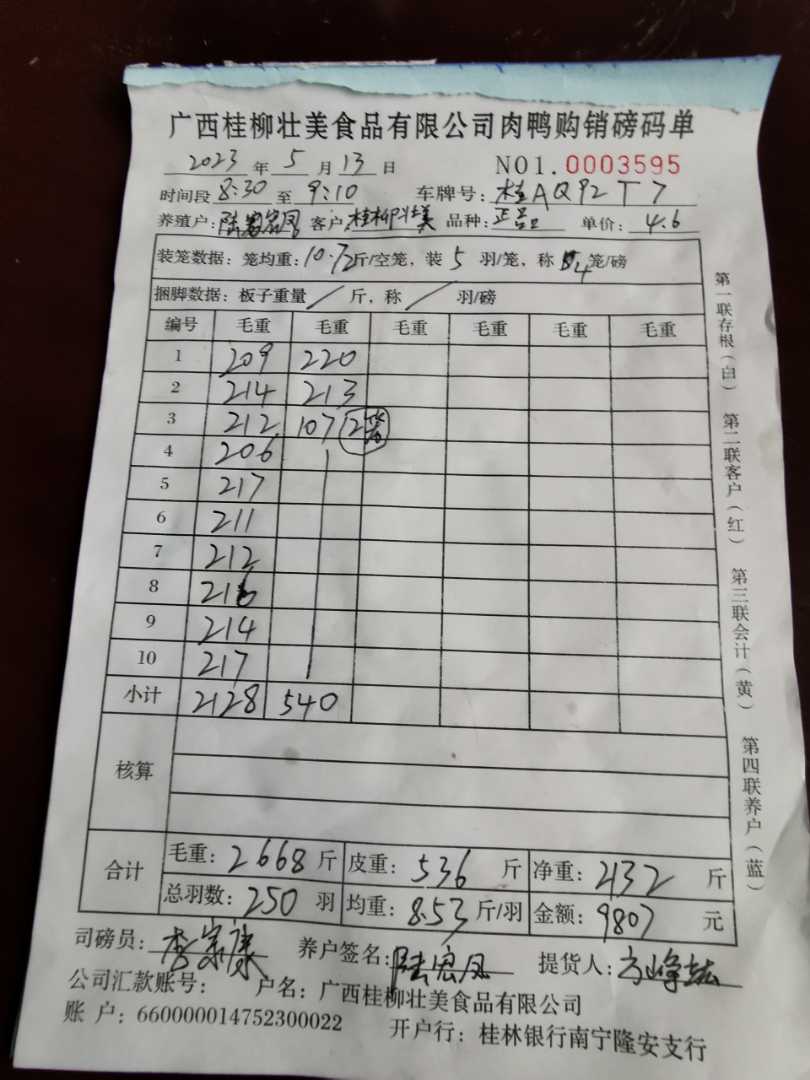 广西桂柳壮美食品有限公司肉鸭购销磅码单
2023 年 5 月 13 日 NO1.0003595
时间段 8:30 至 9:10 车牌号: 桂AQ92T7
养殖户: 陆宏凤 客户: 桂柳壮美 品种: 正品 单价: 4.6
装笼数据: 笼均重: 10.72斤/空笼, 装 5 羽/笼, 称 4 笼/磅
捆脚数据: 板子重量 / 斤, 称 / 羽/磅
编号 毛重 毛重 毛重 毛重 毛重 毛重
1 209 220
2 214 213
3 212 107 (2笼)
4 206
5 217
6 211
7 212
8 216
9 214
10 217
小计 2128 540
核算
合计 毛重: 2668 斤 皮重: 536 斤 净重: 2132 斤
总羽数: 250 羽 均重: 8.53 斤/羽 金额: 9807 元
司磅员: 李家康 养户签名: 陆宏凤 提货人:
公司汇款账号: 户名: 广西桂柳壮美食品有限公司
账 户: 660000014752300022 开户行: 桂林银行南宁隆安支行
第一联存根(白) 第二联客户(红) 第三联会计(黄) 第四联养户(蓝)